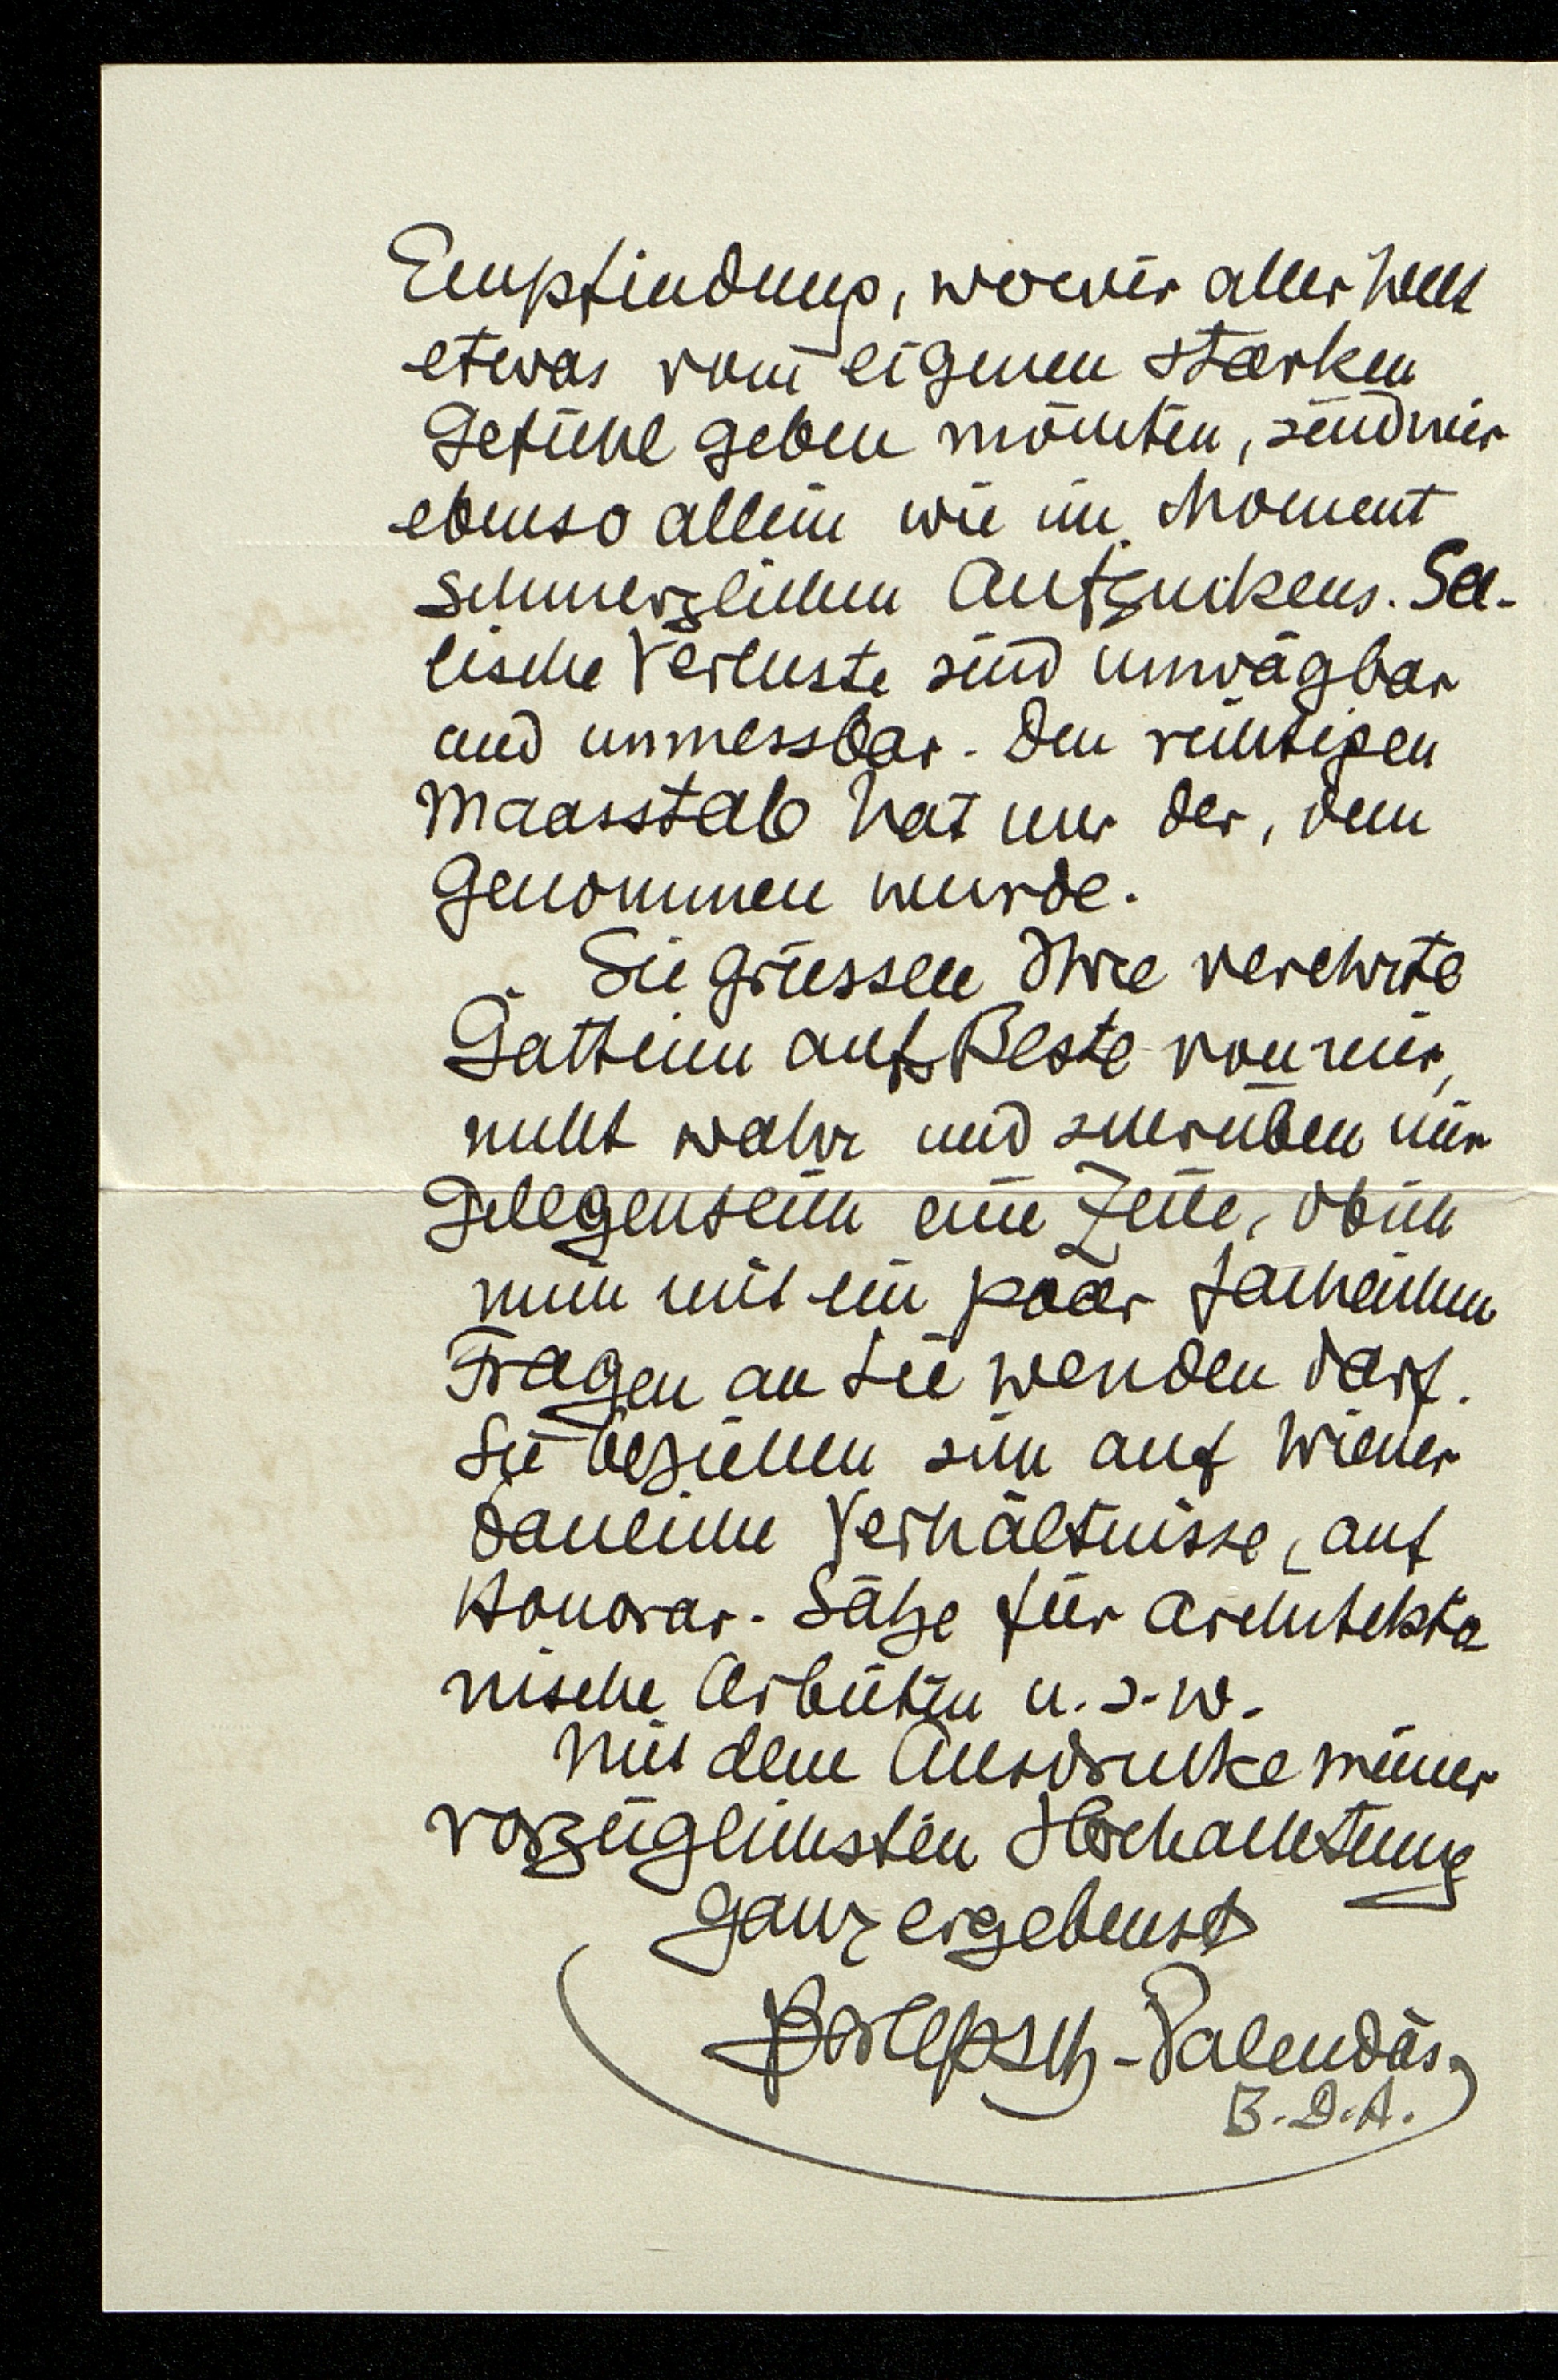 Empfindung, wo wir aller Welt
etwas vom eigenen starken
Gefühl geben möchten, sind wir
ebenso allein wie im Moment
schmerzlichen Aufzuckens. See-
lische Verluste sind unwägbar
und unmessbar. Den richtigen
Maasstab hat nur der, dem
genommen wurde.
Sie grüssen Ihre verehrte
Gattinn aufs Beste von mir,
nicht wahr und schreiben mir
Gelegentlich eine Zeile, ob ich
mich mit ein paar fachlichen
Fragen an Sie wenden darf.
Sie beziehen sich auf Wiener
bauliche Verhältnisse, auf
Honorar-Sätze für architekto
nische Arbeiten u.s.w.
Mit dem Ausdrucke meiner
vorzüglichsten Hochachtung
ganz ergebenst
Berlepsch-Valendàs
B.D.A.